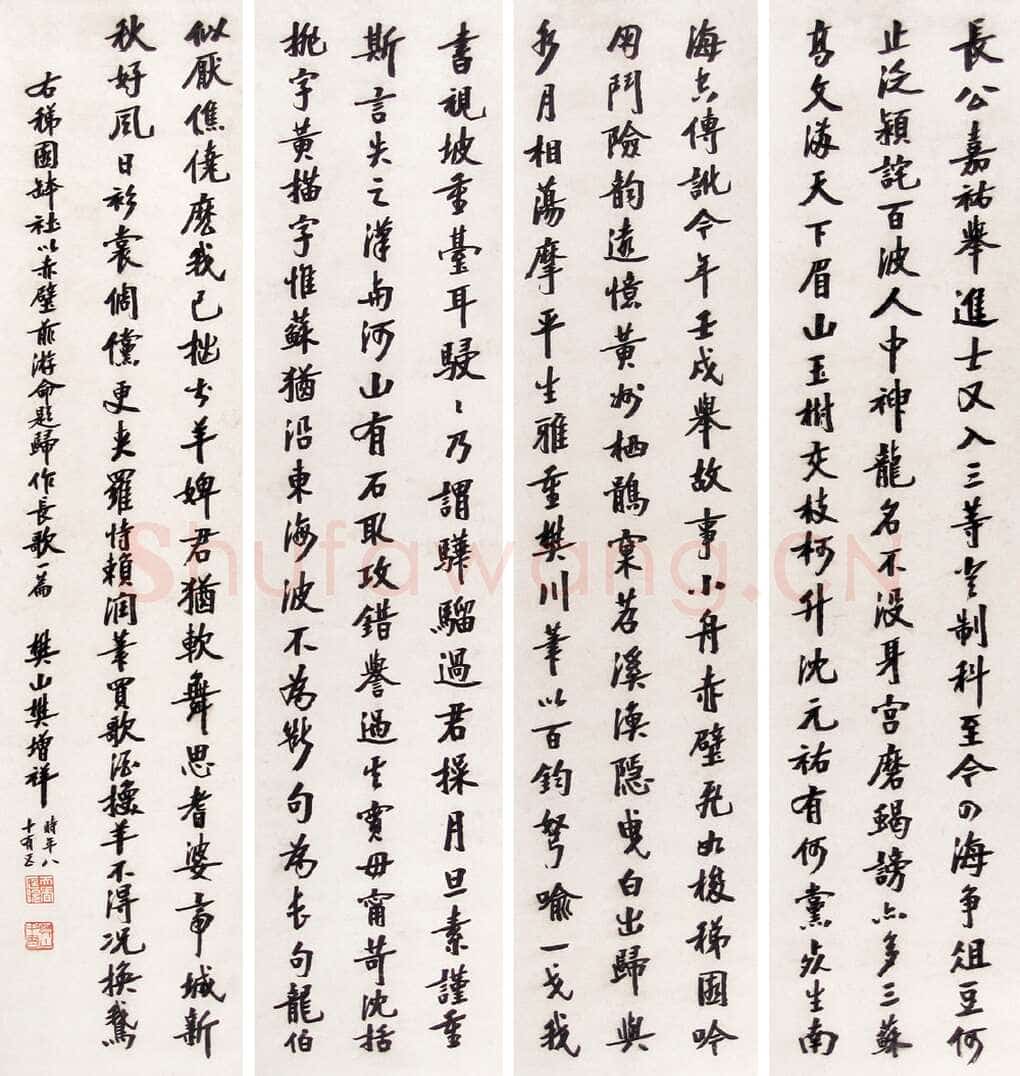 長公嘉祐舉進士又入三等空制科至今四海爭俎豆何
止泛潁詫百波人中神龍名不沒身宮磨蝎謗亦多三蘇
高文滿天下眉山玉樹交枝柯升沈元祐有何黨死生南
海亦傳訛今年壬戌舉故事小舟赤壁飛如梭稊園吟
用鬥險韻遠憶黃州栖鶻窠苕溪漁隱曳白出歸與
水月相蕩摩平生雅重樊川筆以百鈞弩喻一戈我
書視坡重臺耳駸〻乃謂驊騮過君操月旦素謹重
斯言失之漢與河山有石取攻錯譽過其實毋甯苛沈括
挑字黃描字惟蘇猶沿東海波不為斷句為長句龍伯
似厭僬僥麼我已拙書羊婢君猶軟舞思耆婆帝城新
秋好風日衫裳倜儻更夾羅恃賴潤筆買歌酒擾羊不得况換鵞
右稊園缽社以赤壁前游命題歸作長歌一篇 樊山樊增祥
時年八
十有五
Shufawang.CN